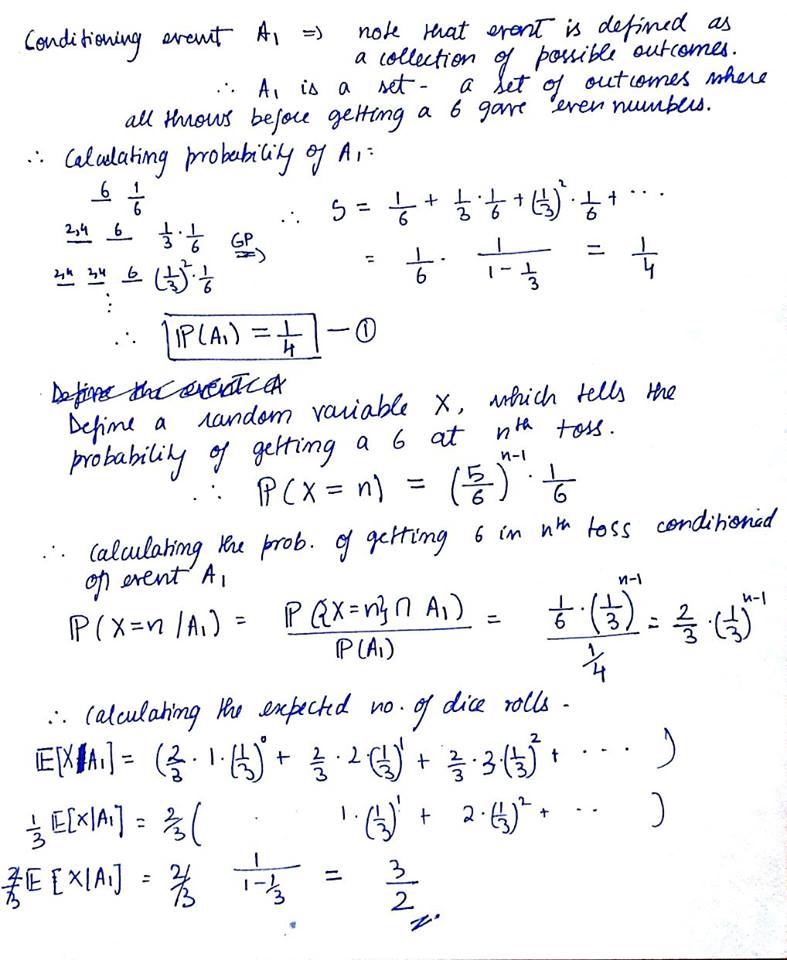 Conditioning event A₁ ⇒ note that event is defined as
a collection of possible outcomes.
∴ A₁ is a set - a set of outcomes where
all throws before getting a 6 gave even numbers.
∴ Calculating probability of A₁:
6 1/6
2,4 6 1/3 · 1/6 GP ⇒
2,4 2,4 6 (1/3)² · 1/6
⋮
∴ S = 1/6 + 1/3 · 1/6 + (1/3)² · 1/6 + ...
= 1/6 · 1/(1 - 1/3) = 1/4
∴ P(A₁) = 1/4 — ①
Define the event A
Define a random variable X, which tells the
probability of getting a 6 at nth toss.
∴ P(X = n) = (5/6)^(n-1) · 1/6
∴ Calculating the prob. of getting 6 in nth toss conditioned
on event A₁
P(X=n/A₁) = P({X=n} ∩ A₁)/P(A₁) = (1/6 · (1/3)^(n-1))/(1/4) = 2/3 · (1/3)^(n-1)
∴ Calculating the expected no. of dice rolls -
E[X|A₁] = (2/3 · 1 · (1/3)⁰ + 2/3 · 2 · (1/3)¹ + 2/3 · 3 · (1/3)² + ... )
1/3 E[X|A₁] = 2/3 ( 1 · (1/3)¹ + 2 · (1/3)² + ·· )
2/3 E[X|A₁] = 2/3 1/(1 - 1/3) = 3/2